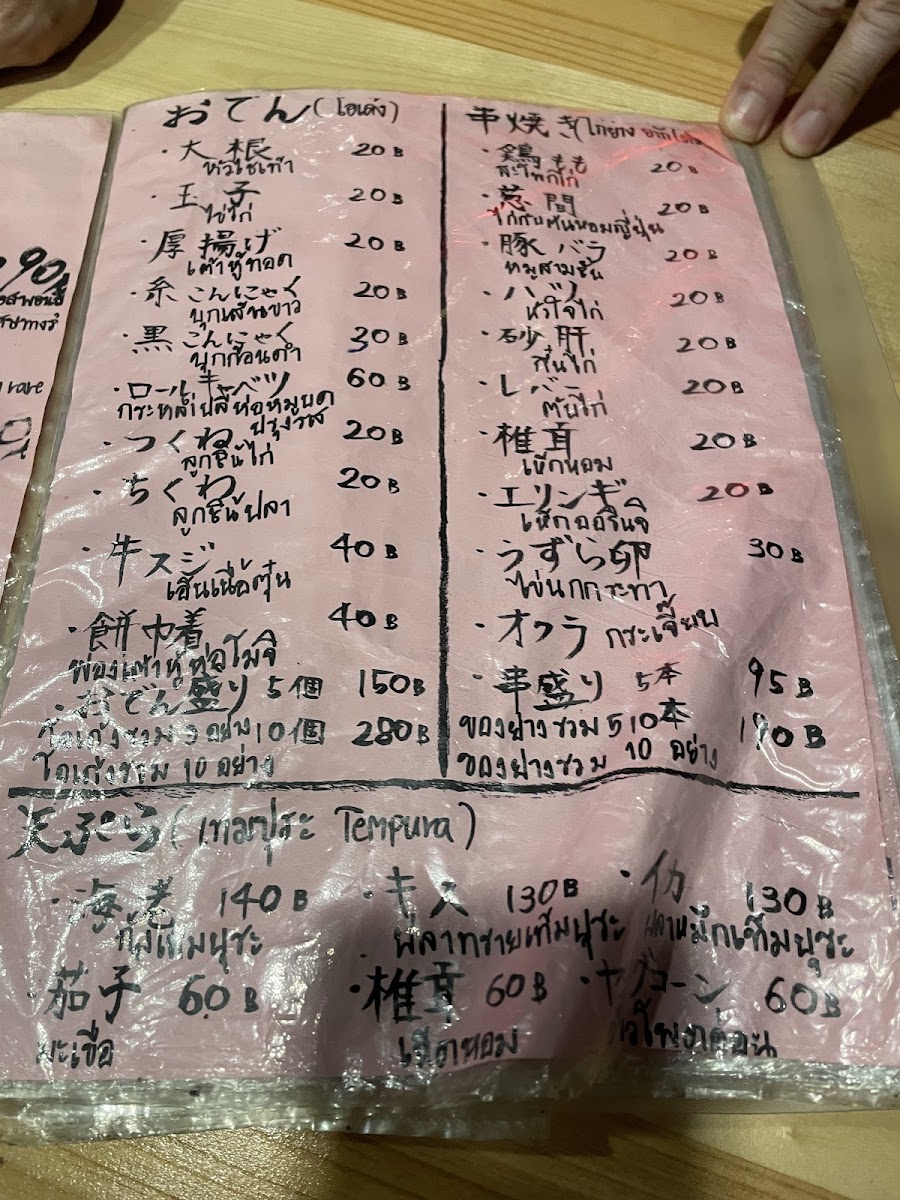 おでん (โอเด้ง)
・大根 20B
หัวไชเท้า
・玉子 20B
ไข่ไก่
・厚揚げ 20B
เต้าหู้ทอด
・糸こんにゃく 20B
บุกเส้นขาว
・黒こんにゃく 30B
บุกก้อนดำ
・ロールキャベツ 60B
กระหล่ำปลีห่อหมูบด
ปรุงรส
・つくね 20B
ลูกชิ้นไก่
・ちくわ 20B
ลูกชิ้นปลา
・牛スジ 40B
เอ็นเนื้อตุ๋น
・餅巾着 40B
ฟองเต้าหู้ห่อโมจิ
・おでん盛り 5個 150B
โอเด้งรวม 5 อย่าง 10個 280B
โอเด้งรวม 10 อย่าง
串焼き (ไก่ย่าง
・鶏もも 20B
สะโพกไก่
・葱間 20B
ไก่กับต้นหอมญี่ปุ่น
・豚バラ 20B
หมูสามชั้น
・ハツ 20B
หัวใจไก่
・砂肝 20B
กึ๋นไก่
・レバー 20B
ตับไก่
・椎茸 20B
เห็ดหอม
・エリンギ 20B
เห็ดออรินจิ
・うずら卵 30B
ไข่นกกระทา
・オクラ กระเจี๊ยบ
・串盛り 5本 95B
ของย่างรวม 5 10本 190B
ของย่างรวม 10 อย่าง
天ぷら (เทมปุระ Tempura)
・海老 140B ・キス 130B ・イカ 130B
กุ้งเทมปุระ ปลาทรายเท็มปุระ ปลาหมึกเท็มปุระ
・茄子 60B ・椎茸 60B ・ヤングコーン 60B
มะเขือ เห็ดหอม ข้าวโพดอ่อน
90
rare